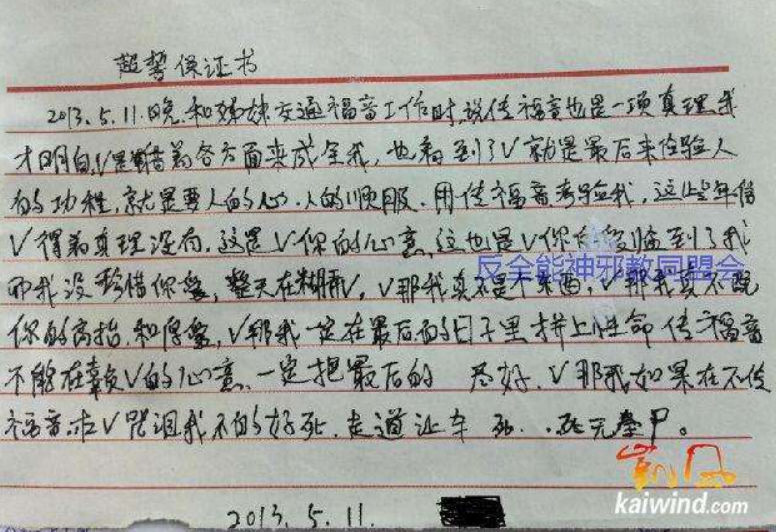 起誓保证书
2013.5.11.晚和姊妹交通福音工作时,说传福音也是一项真理我
才明白,V是借着各方面来成全我,也看到了V就是最后来作验人
的功程,就是要人的心.人的顺服.用传福音考验我,这些年信
V得着真理没有,这是V你的心意,这也是V你临到了我
反全能神邪教同盟会
而我没珍惜你爱,整天在糊弄V,V那我真不是个东西,V那我真不配
你的高抬,和厚爱,V那我一定在最后的日子里拼上性命传福音
不能在辜负V的心意.一定把最后的 尽好.V那我如果在不传
福音求V咒诅我不的好死.走道让车 死..死无全尸。
凯风
kaiwind.com
2013.5.11.